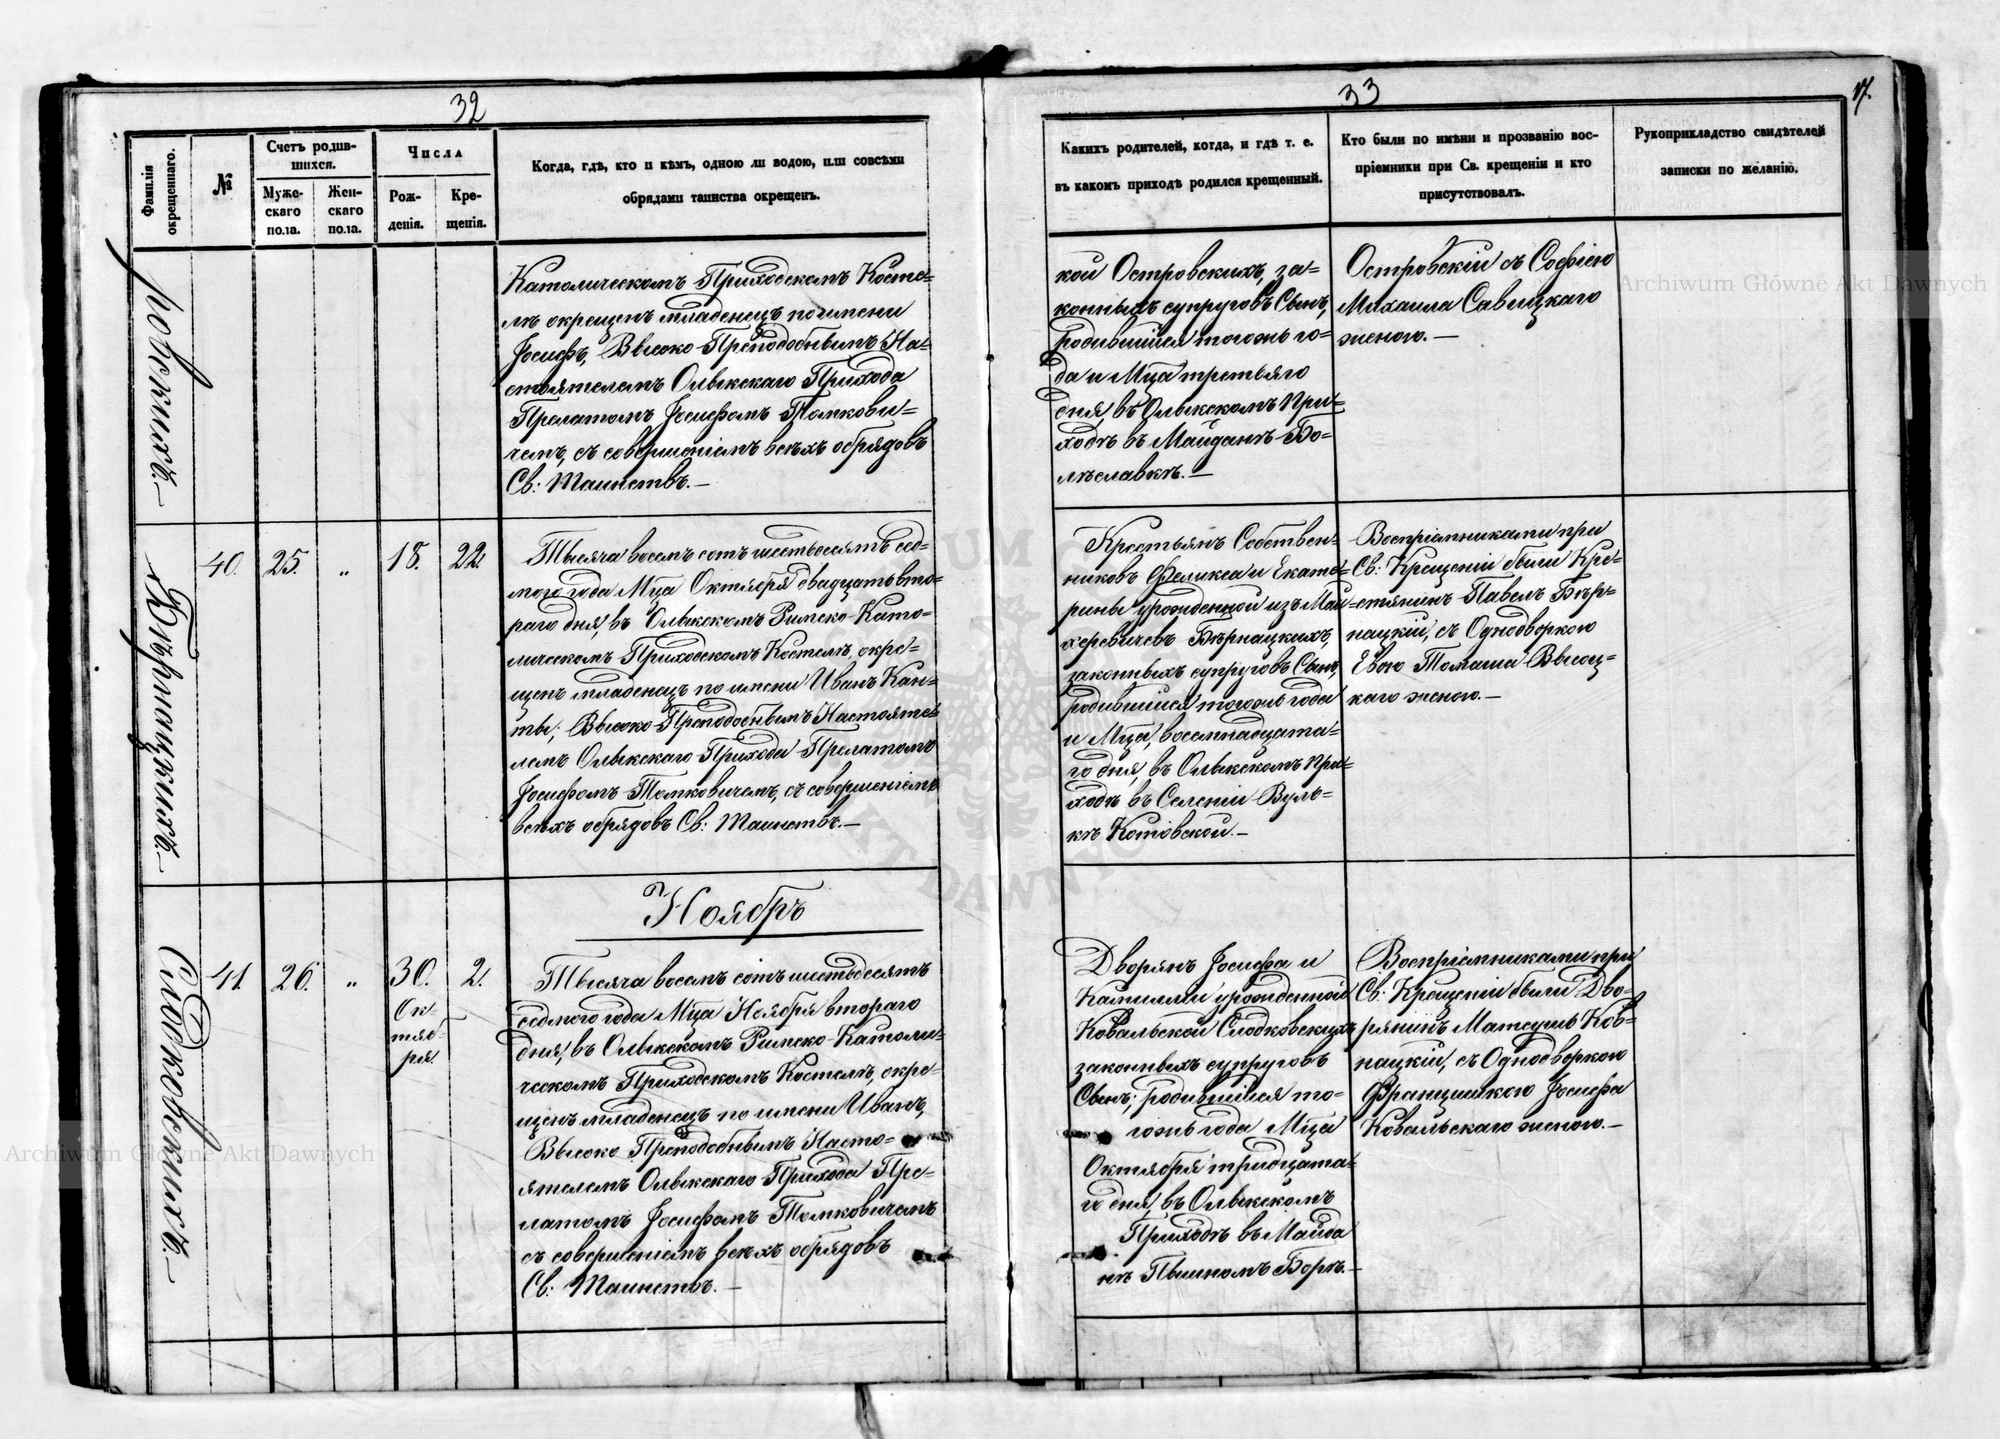 32
Фамилія окрещеннаго.
№
Счетъ родив-
шихся.
Муже-
скаго
пола.
Жен-
скаго
пола.
Числа
Рож-
денія.
Кре-
щенія.
Когда, гдѣ, кто и кѣмъ, одною ли водою, или совсѣми
обрядами таинства окрещенъ.
ровскихъ.—
Католическомъ Приходскомъ Косте=
лѣ окрещенъ младенецъ по имени
Іосифъ, Высоко-Преподобнымъ На=
стоятелемъ Олыкскаго Прихода
Прелатомъ Іосифомъ Томкови=
чемъ, съ совершеніемъ всѣхъ обрядовъ
Св: Таинствъ.—
Бѣрнацкихъ.—
40.
25.
„
18.
22.
Тысяча восемь сотъ шестьдесятъ сед-
мого года Мца Октября двадцать вто-
раго дня, въ Олыкскомъ Римско-Като-
лическомъ Приходскомъ Костелѣ, окре-
щенъ младенецъ по имени Иванъ Кан=
ты; Высоко-Преподобнымъ Настояте=
лемъ Олыкскаго Прихода Прелатомъ
Іосифомъ Томковичемъ, съ совершеніемъ
всѣхъ обрядовъ Св: Таинствъ.—
Ноябрь
Слодковскихъ.—
41.
26.
„
30.
Ок-
тяб-
ря
2.
Тысяча восемь сотъ шестьдесятъ
седмого года Мца Ноября втораго
дня, въ Олыкскомъ Римско-Католи-
ческомъ Приходскомъ Костелѣ, окре-
щенъ младенецъ по имени Иванъ,
Высоко Преподобнымъ Насто=
ятелемъ Олыкскаго Прихода Пре-
латомъ Іосифомъ Томковичемъ
съ совершеніемъ всѣхъ обрядовъ
Св: Таинствъ.—
33
17.
Какихъ родителей, когда, и гдѣ т. е.
въ какомъ приходѣ родился крещенный.
Кто были по имѣни и прозванію вос-
пріемники при Св. крещеніи и кто
присутствовалъ.
Рукоприкладство свидѣтелей
записки по желанію.
кой Островскихъ, за=
конныхъ супруговъ Сынъ,
родившійся тогожъ го-
да и Мца третьяго
дня, въ Олыкскомъ При-
ходѣ въ Майданѣ-Бо-
лѣславкѣ.—
Островскій съ Софіею
Михаила Савицкаго
женою.—
Крестьянъ Собствен-
никовъ Феликса и Екате-
рины урожденной изъ Май-
херевичевъ Бѣрнацкихъ,
законныхъ супруговъ Сынъ,
родившійся тогожъ года
и Мца, восемнадцата-
го дня, въ Олыкскомъ При-
ходѣ въ Селеніи Вуль-
кѣ Котовской.—
Воспріемниками при
Св: Крещеніи были Кре-
стянинъ Павелъ Бѣр-
нацкій, съ Однодворкою
Евою Томаша Высоц-
каго женою.—
Дворянъ Іосифа и
Камиллы урожденной
Ковальской Слодковскихъ
законныхъ супруговъ
Сынъ; родившійся то-
гожъ года Мца
Октября тридцата-
го дня, въ Олыкскомъ
Приходѣ въ Майда
нѣ Пышномъ Борѣ.—
Воспріемниками при
Св: Крещеніи были Дво-
рянинъ Матеушъ Ков-
нацкій, съ Однодворкою
Францишкою Іосифа
Ковальскаго женою.—
Archiwum Główne Akt Dawnych
Archiwum Główne Akt Dawnych